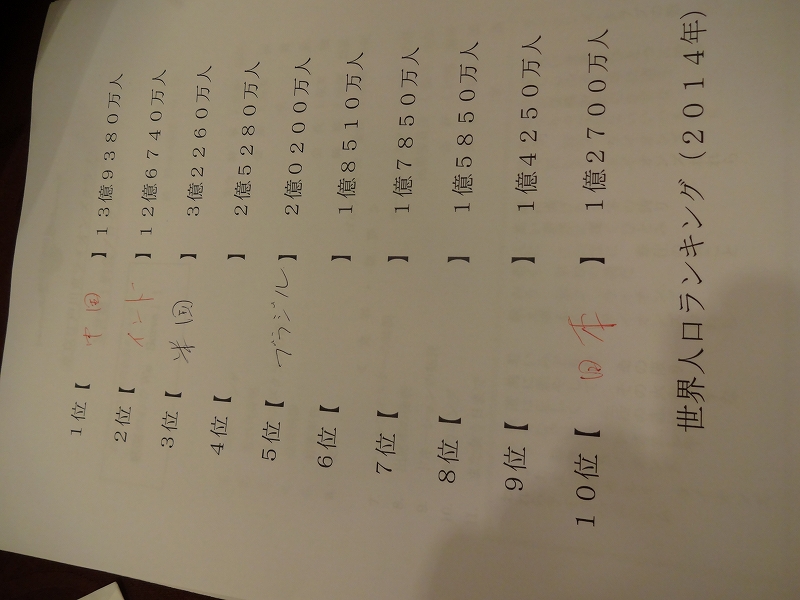 1位【 中国 】13億9380万人
2位【 インド 】12億6740万人
3位【 米国 】3億2260万人
4位【 】2億5280万人
5位【 ブラジル 】2億0200万人
6位【 】1億8510万人
7位【 】1億7850万人
8位【 】1億5850万人
9位【 】1億4250万人
10位【 日本 】1億2700万人
世界人口ランキング（2014年）